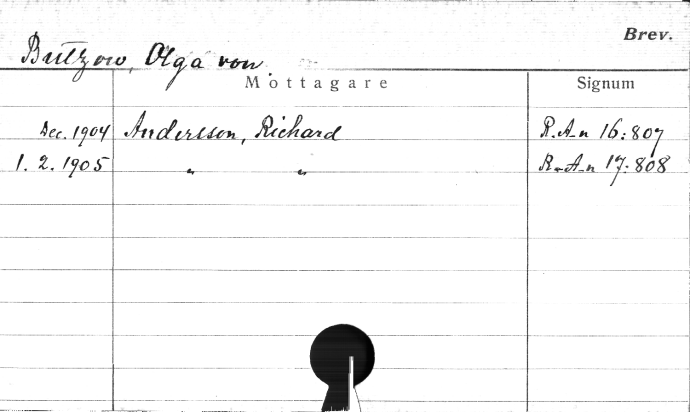 Brev.
Bützow, Olga von.
Mottagare Signum
Dec. 1904 Andersson, Richard R.A-n 16:807
1. 2. 1905 " " R.A-n 17:808